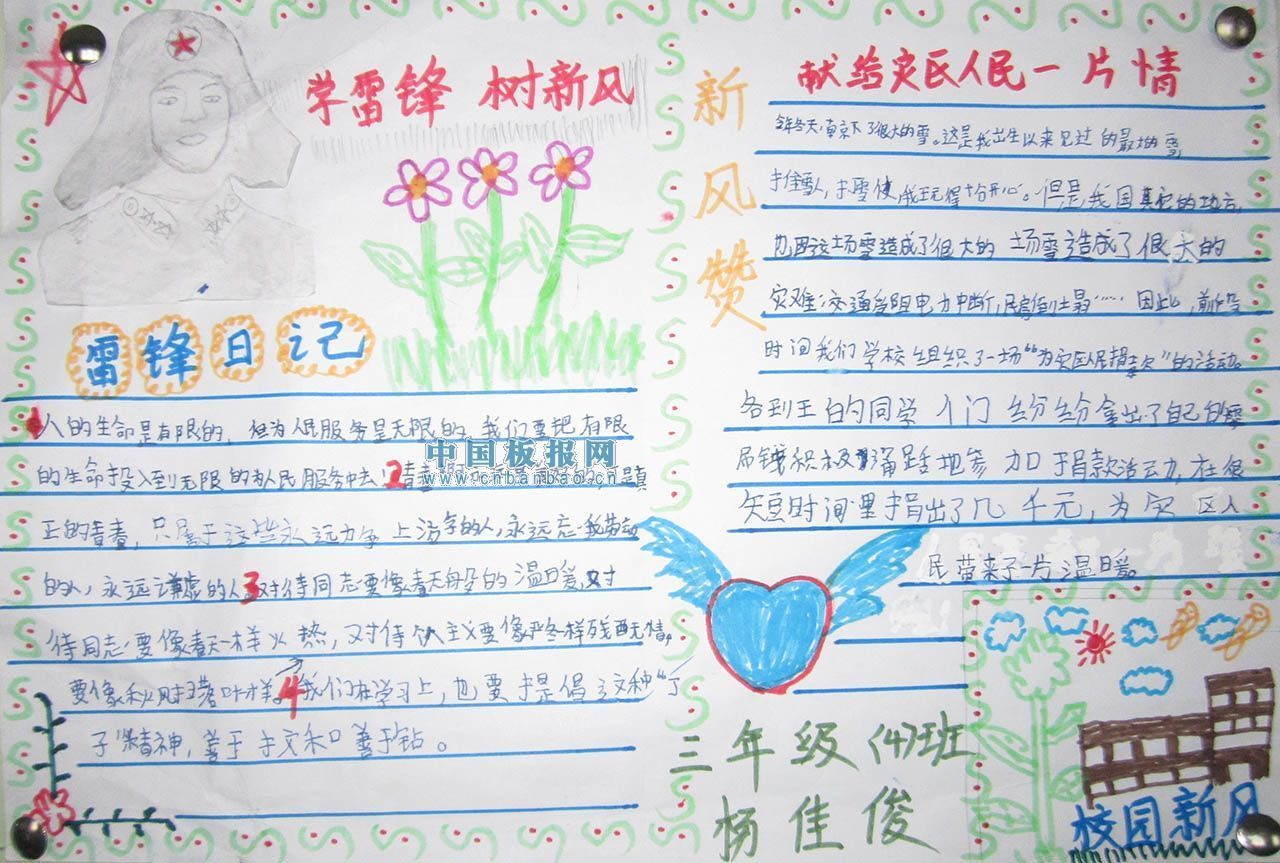 学雷锋 树新风
雷锋日记
1人的生命是有限的，但为人民服务是无限的，我们要把有限
的生命投入到无限的为人民服务中去！2青春
是真
正的青春，只属于这些永远力争上游的人，永远忘我劳动
的人，永远谦虚的人3对待同志要像春天般的温暖，对
待同志要像春天一样火热，对待个人主义要像严冬一样残酷无情，
要像秋风扫落叶一样。4我们在学习上，也要提倡这种“丁
子”精神，善于挤和善于钻。
中国板报网
www.cnbanbao.cn
新风赞
献给灾民人民一片情
今年冬天，南京下了很大的雪。这是我出生以来见过的最大的雪
堆雪人，打雪仗，我玩得十分开心。但是我国其它的地方，
也因这场雪造成了很大的 场雪造成了很大的
灾难：交通受阻电力中断，民房倒塌…… 因此，前段
时间我们学校组织了一场“为灾区人民捐款”的活动。
各到王的同学们纷纷拿出了自己的零
用钱积极踊跃地参加捐款活动，在很
短时间里捐出了几千元，为灾区人
民带来了一片温暖。
三年级（4）班
杨佳俊
校园新风